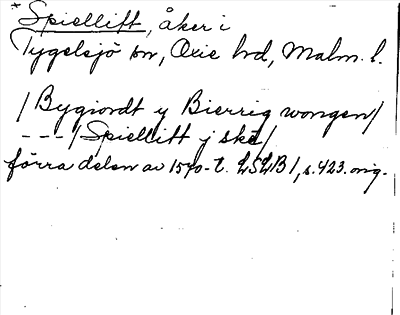 * Spiellitt, åker i
Tygelsjö sn, Oxie hd, Malm. l.
/ Bygiordt y Bierrig wongen/
---/ Spiellitt j ske/
förra delen av 1570-t. LSLB I, s. 423. orig.